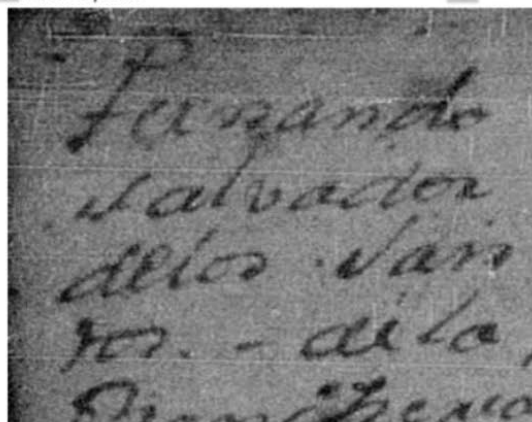 Fernando
Salvador
delos San
tos. - de la